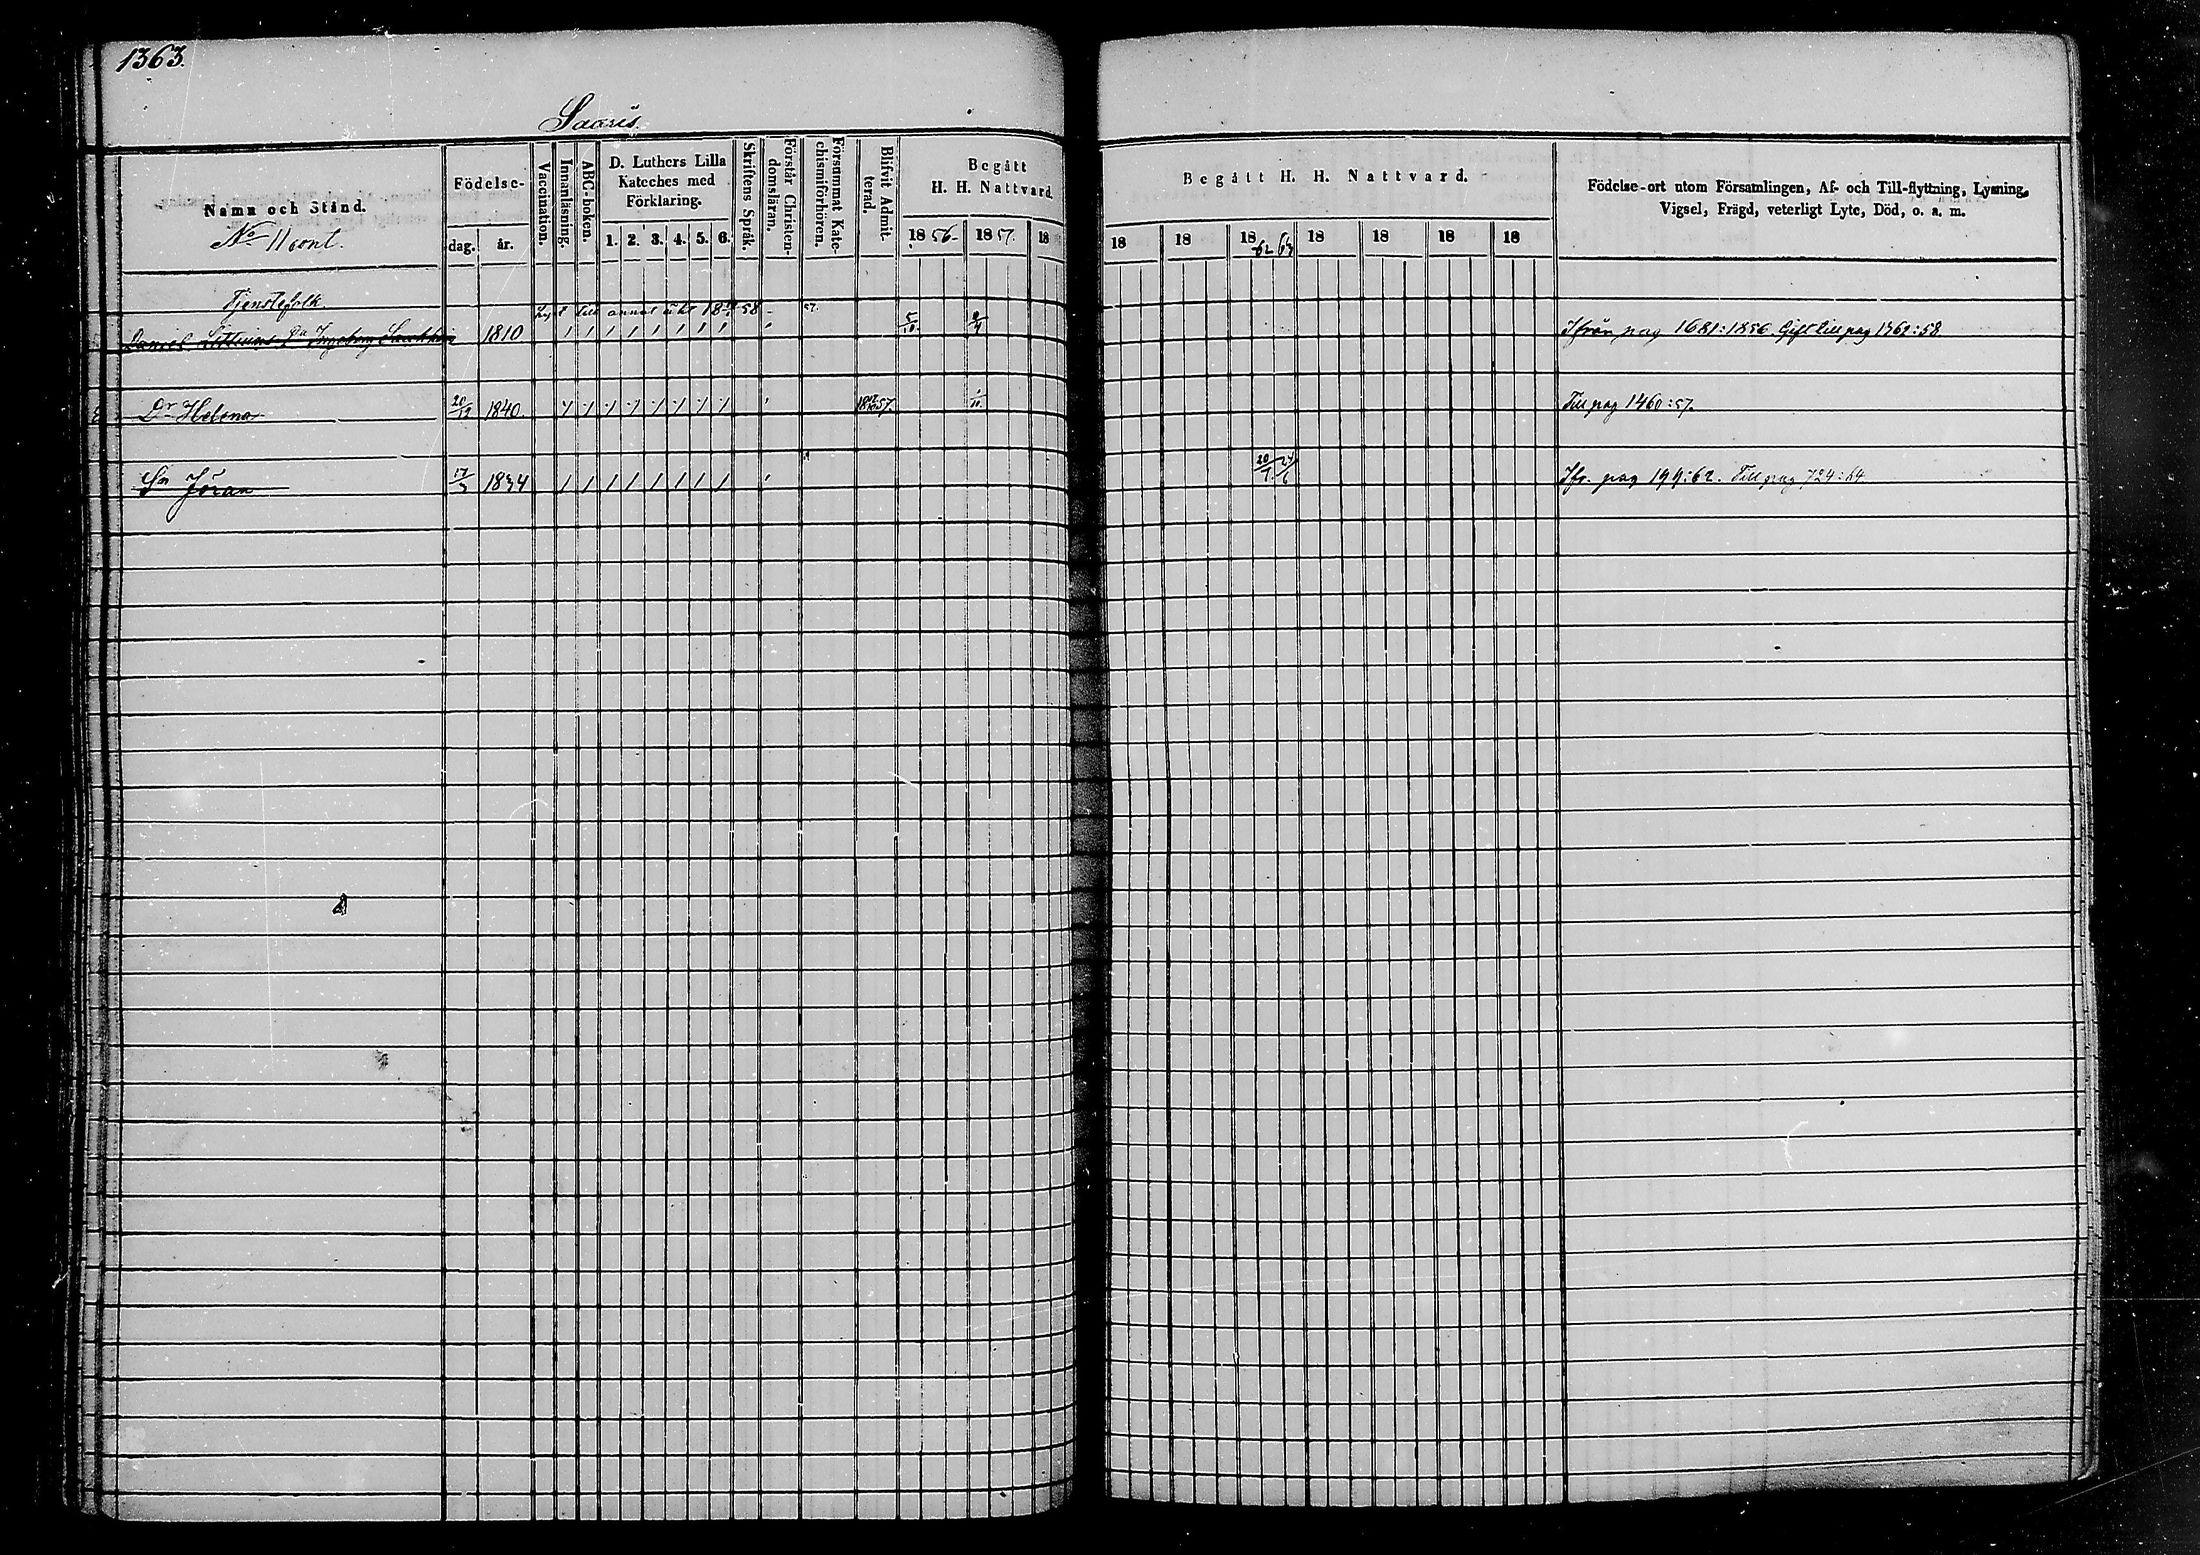 1363.
Saaris.
Namn och Stånd.
No 11 cont.
Födelse-
dag. år.
Vaccination.
Innanläsning.
ABC-boken.
D. Luthers Lilla
Kateches med
Förklaring.
1. 2. 3. 4. 5. 6.
Skriftens Språk.
Förstår Christen-
domsläran.
Försummat Kate-
chismiförhören.
Blifvit Admit-
terad.
Begått
H. H. Nattvard.
1856. 1857. 18
Begått H. H. Nattvard.
18 18 18 62 63 18 18 18 18
Födelse-ort utom Församlingen, Af- och Till-flyttning, Lysning,
Vigsel, Frägd, veterligt Lyte, Död, o. a. m.
Tjenstefolk
Lyst till annat äkt 18 58 57.
Daniel 1810 1 1 1 1 1 1 1 1 Ifrån pag 1681:1856. Gift till pag 1362:58.
Dr Helena 20/12 1840 1857. Till pag 1460:57.
Sn Jöran 17/3 1834 1 1 1 1 1 1 1 1 20/7 24/6 Ifr. pag 199:62. Till pag 724:64